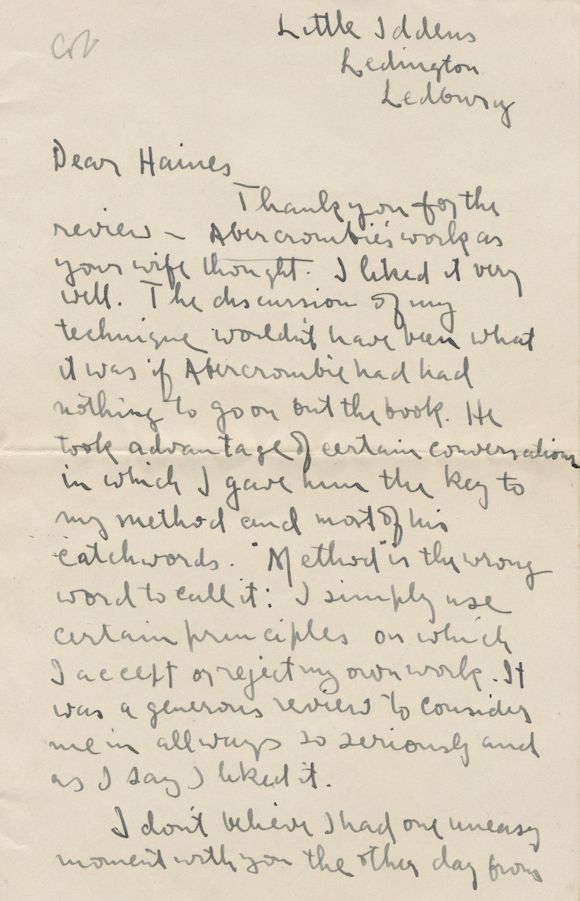 Little Iddens
Ledington
Ledbury
Dear Haines
Thank you for the
review – Abercrombie's work as
your wife thought. I liked it very
well. The discussion of my
technique wouldn't have been what
it was if Abercrombie had had
nothing to go on but the book. He
took advantage of certain conversations
in which I gave him the key to
my method and most of his
catchwords. "Method" is the wrong
word to call it: I simply use
certain principles on which
I accept or reject my own work. It
was a generous review to consider
me in all ways so seriously and
as I say I liked it.
I don't believe I had one uneasy
moment with you the other day from